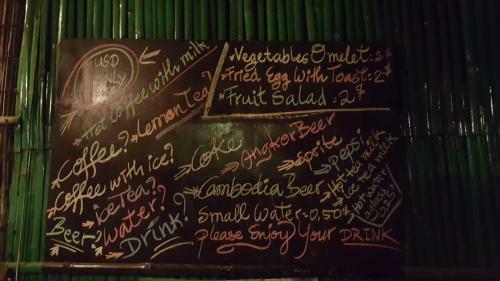 USD
only
Hot coffee with milk
Lemon Tea?
Coffee?
Coffee with ice?
ice Tea?
Beer?
water?
Drink?
Vegetables Omelet: 2$
Fried Egg With Toast: 2$
Fruit Salad: 2$
Coke
Angkor Beer
Sprite
Pepsi
Cambodia Beer
Hot tea milk
Ice tea milk
Hot water
0.25$
small water = 0,50$
please Enjoy Your DRINK